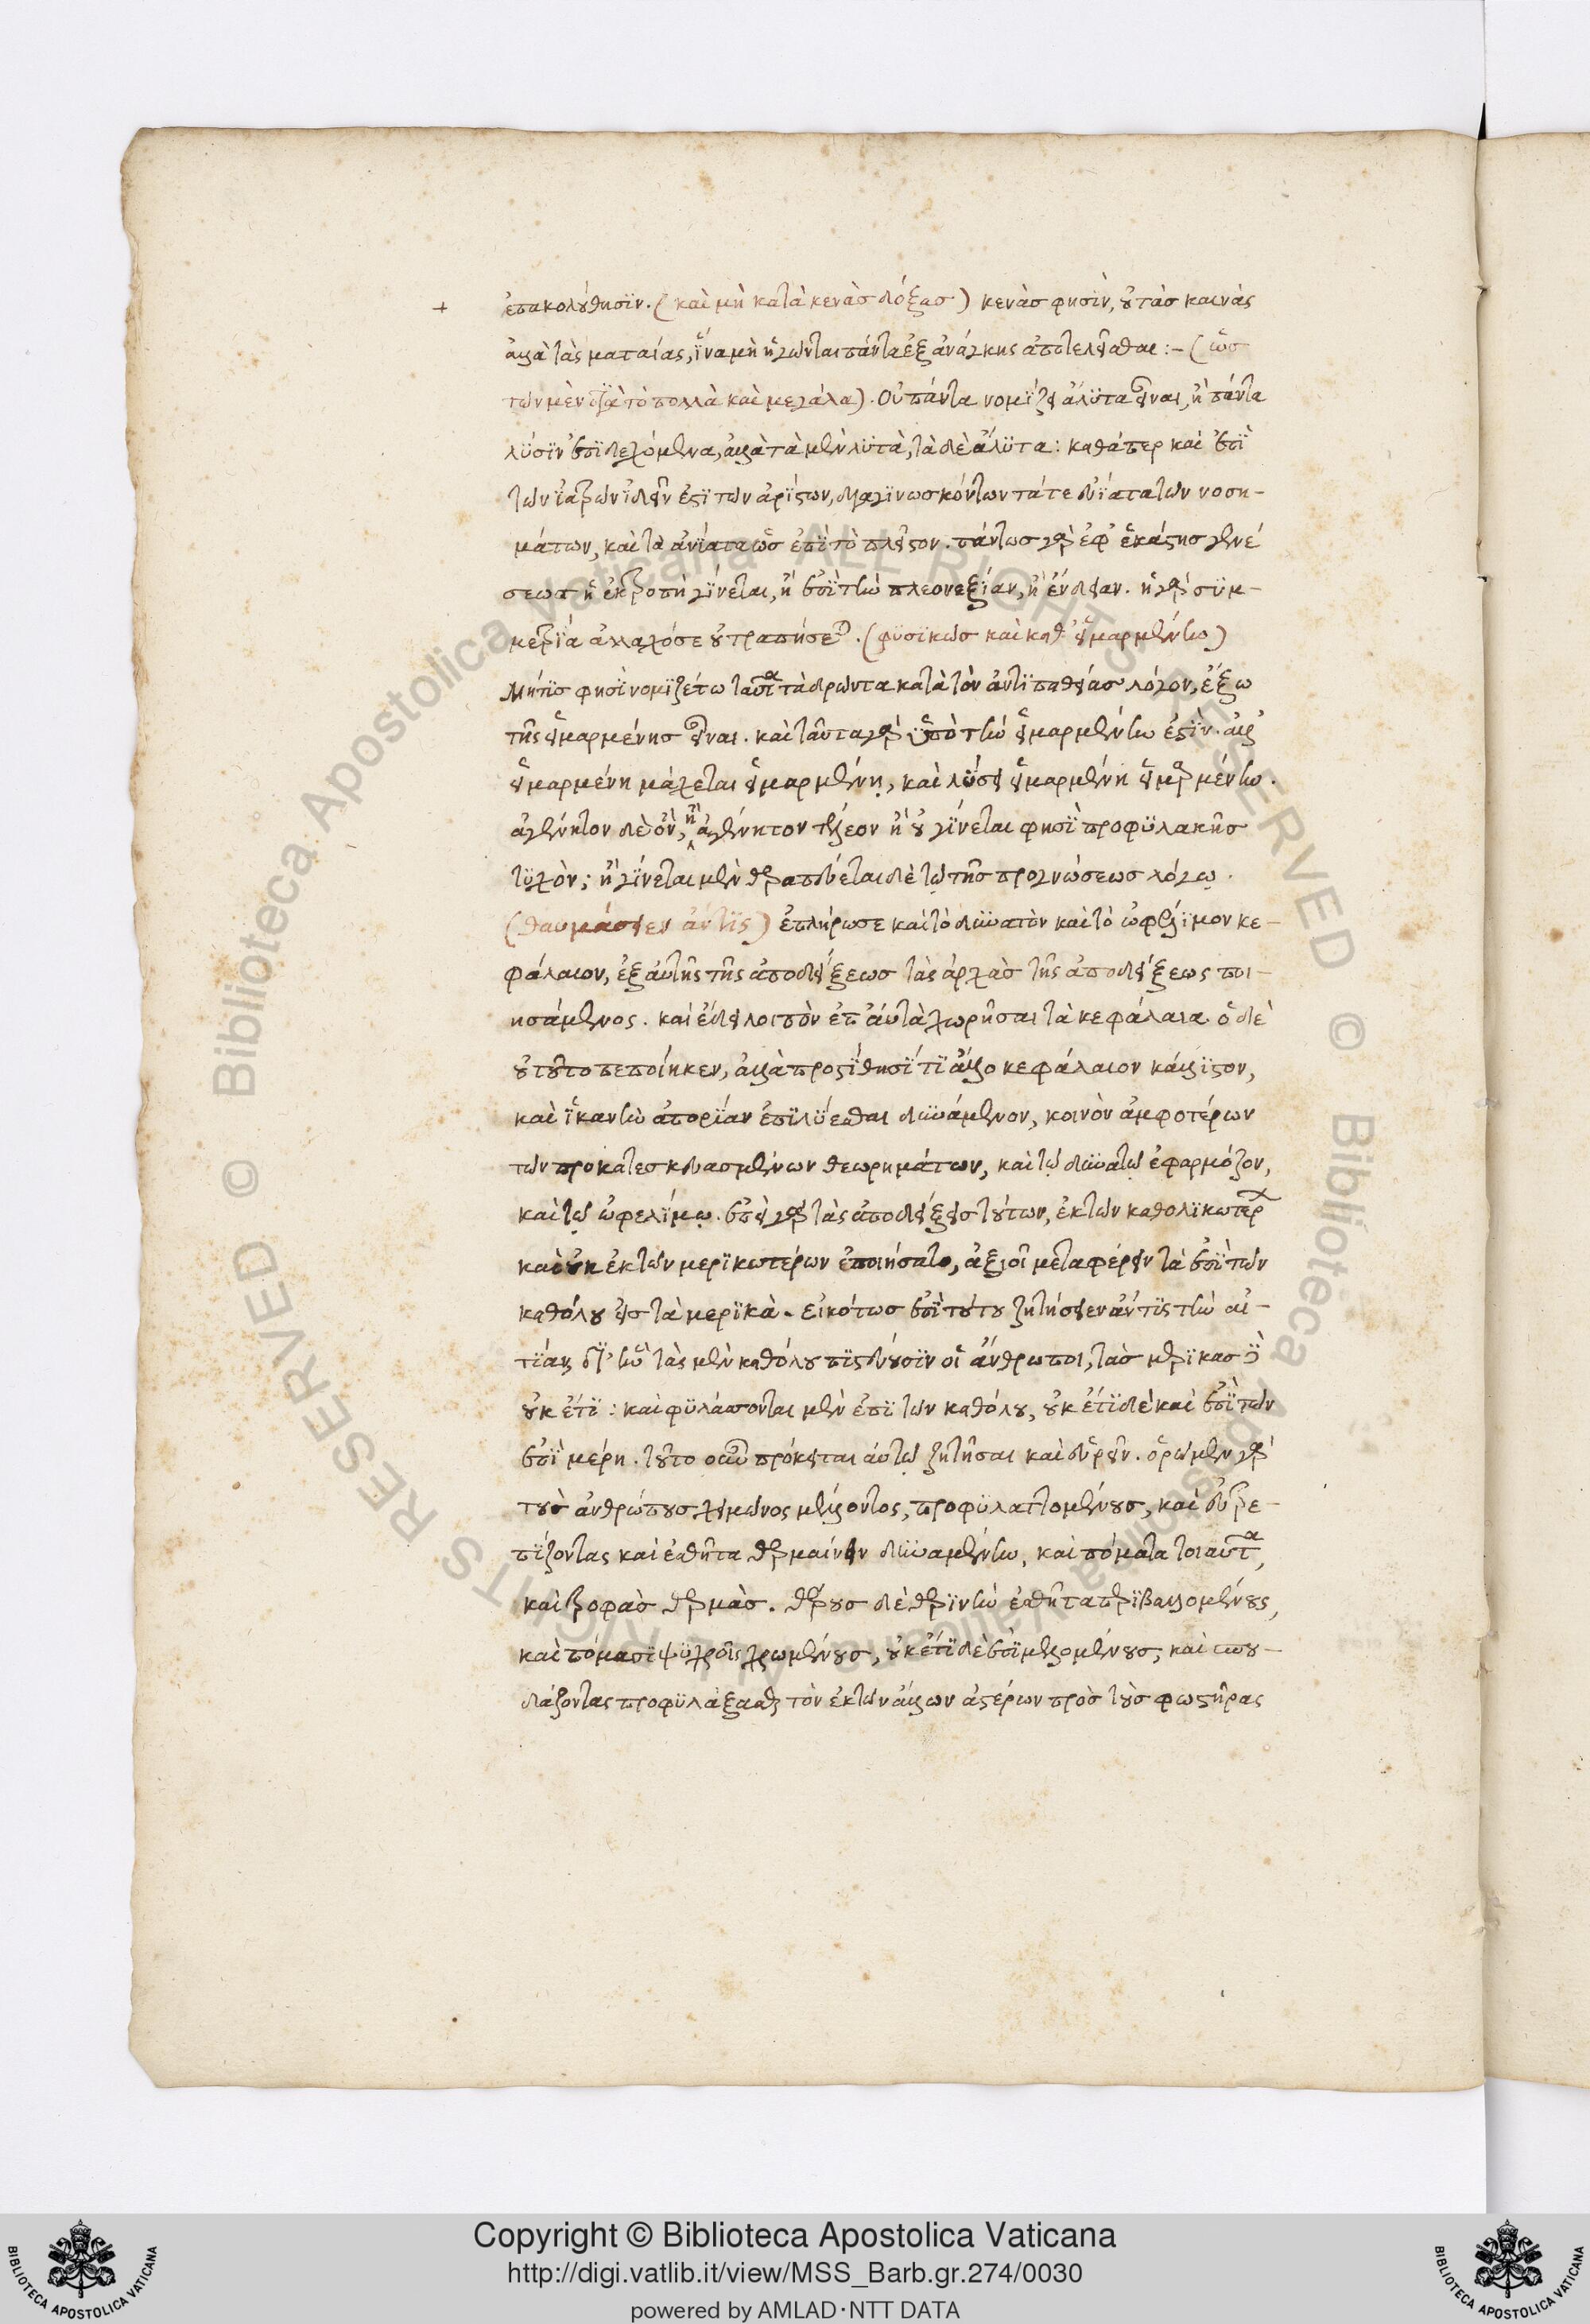 ἐπακολούθησιν. (καὶ μὴ κατὰ κενὰς δόξας) κενὰς φησὶν, οὐ τὰς καινὰς
ἀλλὰ τὰς ματαίας, ἵνα μὴ ἡγῶνται πάντα ἐξ ἀνάγκης ἀποτελεῖσθαι :- (ὡς
τῶν μὲν διὰ τὸ πολλὰ καὶ μεγάλα). Οὐ πάντα νομίζει ἄλυτα εἶναι, ἢ πάντα
λύσιν ἐπιδεχόμενα, ἀλλὰ τὰ μὲν λυτὰ, τὰ δὲ ἄλυτα: καθάπερ καὶ ἐπὶ
τῶν ἰατρῶν ἰδεῖν ἐστὶ τῶν ἀρίστων, διαγινωσκόντων τά τε εὐίατα τῶν νοση-
μάτων, καὶ τὰ ἀνίατα ὡς ἐπὶ τὸ πλεῖστον. πάντως γὰρ ἐφ' ἑκάστης γενέ
σεως ἡ ἐκτροπὴ γίνεται, ἢ ἐπὶ τὴν πλεονεξίαν, ἢ ἔνδειαν. ἡ γὰρ συμ-
μετρία ἀλλαχόσε οὐ τραπήσεται. (φυσικῶς καὶ καθ' εἱμαρμένην)
Μήτις φησὶ νομιζέτω ταῦτα τὰ δρῶντα κατὰ τὸν ἀντιπαθείας λόγον, ἔξω
τῆς εἱμαρμένης εἶναι. καὶ ταῦτα γὰρ ὑπὸ τὴν εἱμαρμένην ἐστίν. ἀλλ'
εἱμαρμένη μάχεται εἱμαρμένῃ, καὶ λύσει εἱμαρμένη εἱμαρμένην.
ἀγένητον δὲ ὂν, ἢ ἀγένητον τέλεον ἢ οὐ γίνεται φησὶ προφυλακῆς
τυχὸν; ἢ γίνεται μὲν θεραπεύεται δὲ τῷ τῆς προγνώσεως λόγῳ.
(θαυμάσειεν ἄν τις) ἐπλήρωσε καὶ τὸ δυνατὸν καὶ τὸ ὠφέλιμον κε-
φάλαιον, ἐξ αὐτῆς τῆς ἀποδείξεως τὰς ἀρχὰς τῆς ἀποδείξεως ποι-
ησάμενος. καὶ ἔδει λοιπὸν ἐπ' αὐτὰ χωρῆσαι τὰ κεφάλαια ὁ δὲ
οὐ τοῦτο πεποίηκεν, ἀλλὰ προστίθησί τι ἄλλο κεφάλαιον κάλλιστον,
καὶ ἱκανὴν ἀπορίαν ἐπιλύεσθαι δυνάμενον, κοινὸν ἀμφοτέρων
τῶν προκατεσκευασμένων θεωρημάτων, καὶ τῷ δυνατῷ ἐφαρμόζον,
καὶ τῷ ὠφελίμῳ. ἐπεὶ γὰρ τὰς ἀποδείξεις τούτων, ἐκ τῶν καθολικωτέρων
καὶ οὐκ ἐκ τῶν μερικωτέρων ἐποιήσατο, ἀξιοῖ μεταφέρειν τὰ ἐπὶ τῶν
καθόλου εἰς τὰ μερικὰ. εἰκότως ἐπὶ τούτου ζητήσειεν ἄν τις τὴν αἰ-
τίαν, δι' ἣν τὰς μὲν καθόλου πιστεύουσιν οἱ ἄνθρωποι, τὰς μερικὰς δὲ
οὐκ έτι: καὶ φυλάττονται μὲν ἐπὶ τῶν καθόλου, οὐκ ἔτι δὲ καὶ ἐπὶ τῶν
ἐπὶ μέρη. τοῦτο οὖν πρόκειται αὐτῷ ζητῆσαι καὶ εὑρεῖν. ὁρῶμεν γὰρ
τοὺς ἀνθρώπους χειμῶνος μέλλοντος, προφυλαττομένους, καὶ εὐτρε-
πίζοντας καὶ ἐσθῆτα θερμαίνειν δυναμένην, καὶ πόματα τοιαῦτα,
καὶ τροφὰς θερμὰς. θέρους δὲ θερινὴν ἐσθῆτα περιβαλλομένους,
καὶ πόμασι ψυχροῖς χρωμένους, οὐκ ἔτι δὲ ἐπιμελομένους, καὶ σπου-
δάζοντας προφυλάξασθαι τὸν ἐκ τῶν ἄλλων ἀστέρων πρὸς τοὺς φωστῆρας
Copyright © Biblioteca Apostolica Vaticana
http://digi.vatlib.it/view/MSS_Barb.gr.274/0030
powered by AMLAD·NTT DATA
© Biblioteca Apostolica Vaticana ALL RIGHTS RESERVED © Biblioteca Apostolica Vaticana ALL RIGHTS RESERVED
BIBLIOTECA APOSTOLICA VATICANA
BIBLIOTECA APOSTOLICA VATICANA